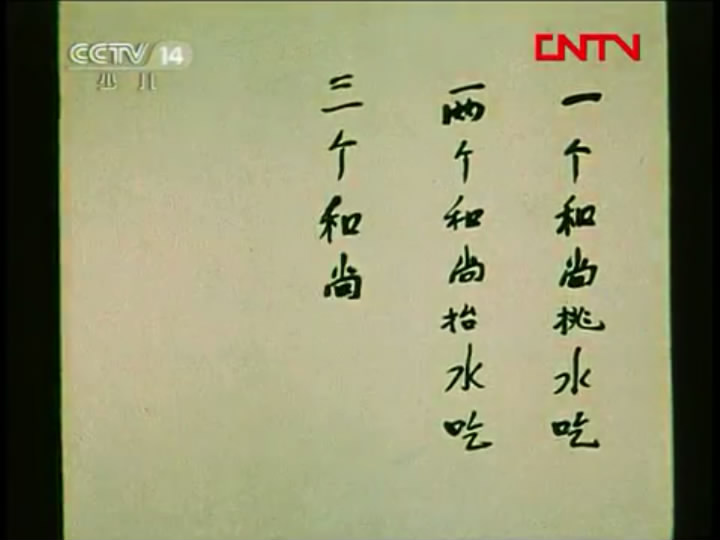 CCTV 14
少儿
CNTV
一个和尚挑水吃
两个和尚抬水吃
三个和尚